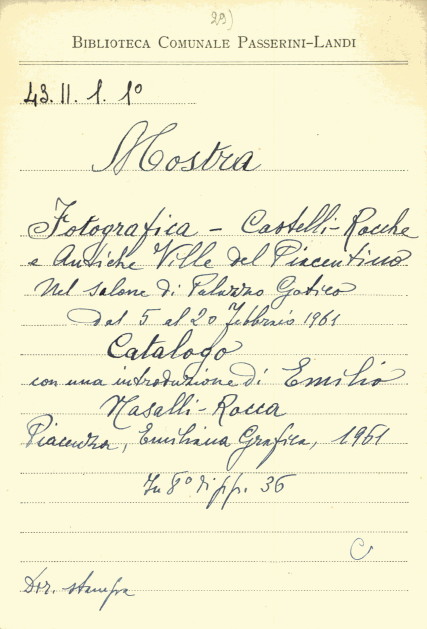 29)
BIBLIOTECA COMUNALE PASSERINI-LANDI
43. II. 1. 1º
Mostra
Fotografica - Castelli-Rocche
e Antiche Ville del Piacentino
Nel salone di Palazzo Gotico
dal 5 al 20 Febbraio 1961
Catalogo
con una introduzione di Emilio
Nasalli-Rocca
Piacenza, Emiliana Grafica, 1961
In 8º di pp. 36
C
stampa